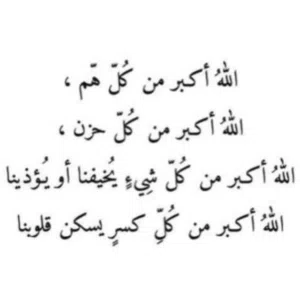 اللهُ أكبر من كُلّ هّم ،
اللهُ أكبر من كُلّ حزن ،
اللهُ أكبر من كُلّ شِيءٍ يُخيفنا أو يُؤذينا
اللهُ أكبر من كُلِّ كسرٍ يسكن قلوبنا